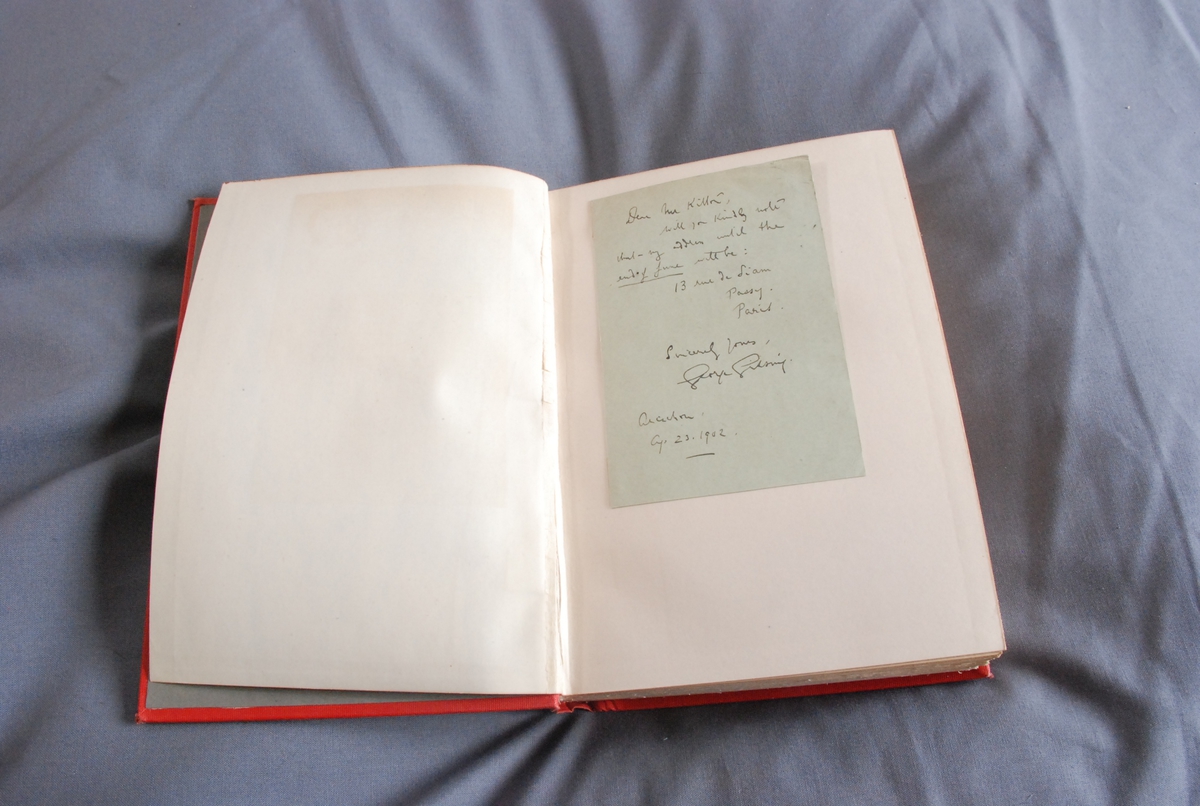 Dear Mr Kitton,
Will you kindly note
that my address until the
end of June will be:
13 rue de Siam
Passy.
Paris.
Sincerely yours,
George Gissing.
Arcachon.
Ap. 23. 1902.